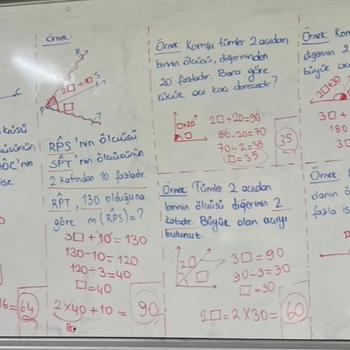 Örnek:
R
2□+10
S
P
□
T
RP̂S'nin ölçüsü
SP̂T'nin ölçüsünün
2 katından 10 fazladır.
RP̂T, 130 olduğuna
göre m(RP̂S)=?
3□+10=130
130-10=120
120÷3=40
□=40
2×40+10=90
80
Örnek: Komşu tümler 2 açıdan
birinin ölçüsü, diğerinden
20 fazladır. Buna göre
küçük açı kaç derecedir?
□+20
□
2□+20=90
90-20=70
70÷2=35
□=35
35
Örnek: Tümler 2 açıdan
birinin ölçüsü diğerinin 2
katıdır. Büyük olan açıyı
bulunuz.
2□
□
3□=90
90÷3=30
□=30
2□=2×30=60
C
ise
16=64
Örnek
diğerinin 2
büyük açı
2□+30
3□+
180
□
Örnek:
olanın ö
fazla is